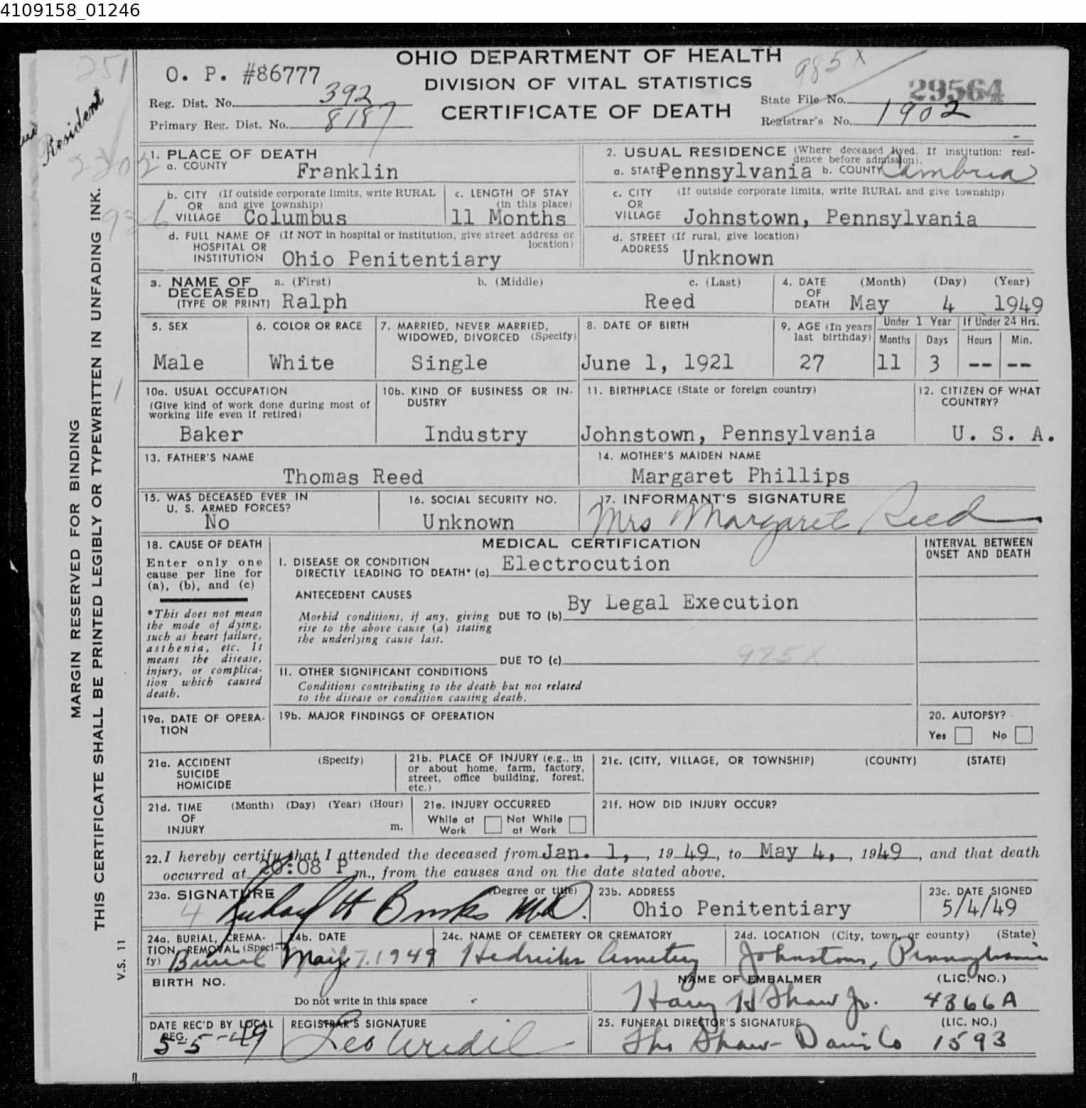 4109158_01246
OHIO DEPARTMENT OF HEALTH
DIVISION OF VITAL STATISTICS
CERTIFICATE OF DEATH
O. P. #86777
Reg. Dist. No. 392
Primary Reg. Dist. No. 8187
985X
State File No. 29564
Registrar's No. 1902
251
Resident
MARGIN RESERVED FOR BINDING
THIS CERTIFICATE SHALL BE PRINTED LEGIBLY OR TYPEWRITTEN IN UNFADING INK.
V.S. 11
1. PLACE OF DEATH
a. COUNTY Franklin
b. CITY (If outside corporate limits, write RURAL
OR and give township)
VILLAGE Columbus
c. LENGTH OF STAY
(in this place)
11 Months
d. FULL NAME OF (If NOT in hospital or institution, give street address or
HOSPITAL OR location)
INSTITUTION Ohio Penitentiary
2. USUAL RESIDENCE (Where deceased lived. If institution: resi-
dence before admission).
a. STATE Pennsylvania b. COUNTY Cambria
c. CITY (If outside corporate limits, write RURAL and give township)
OR
VILLAGE Johnstown, Pennsylvania
d. STREET (If rural, give location)
ADDRESS Unknown
3. NAME OF a. (First) b. (Middle) c. (Last)
DECEASED
(TYPE OR PRINT) Ralph Reed
4. DATE (Month) (Day) (Year)
OF
DEATH May 4 1949
5. SEX
Male
6. COLOR OR RACE
White
7. MARRIED, NEVER MARRIED,
WIDOWED, DIVORCED (Specify)
Single
8. DATE OF BIRTH
June 1, 1921
9. AGE (In years
last birthday)
27
Under 1 Year If Under 24 Hrs.
Months Days Hours Min.
11 3 -- --
10a. USUAL OCCUPATION
(Give kind of work done during most of
working life even if retired)
Baker
10b. KIND OF BUSINESS OR IN-
DUSTRY
Industry
11. BIRTHPLACE (State or foreign country)
Johnstown, Pennsylvania
12. CITIZEN OF WHAT
COUNTRY?
U. S. A.
13. FATHER'S NAME
Thomas Reed
14. MOTHER'S MAIDEN NAME
Margaret Phillips
15. WAS DECEASED EVER IN
U. S. ARMED FORCES?
No
16. SOCIAL SECURITY NO.
Unknown
17. INFORMANT'S SIGNATURE
Mrs Margaret Reed
18. CAUSE OF DEATH
Enter only one
cause per line for
(a), (b), and (c)
*This does not mean
the mode of dying,
such as heart failure,
asthenia, etc. It
means the disease,
injury, or complica-
tion which caused
death.
MEDICAL CERTIFICATION
I. DISEASE OR CONDITION
DIRECTLY LEADING TO DEATH* (a) Electrocution
ANTECEDENT CAUSES
Morbid conditions, if any, giving DUE TO (b) By Legal Execution
rise to the above cause (a) stating
the underlying cause last.
DUE TO (c)
II. OTHER SIGNIFICANT CONDITIONS
Conditions contributing to the death but not related
to the disease or condition causing death.
INTERVAL BETWEEN
ONSET AND DEATH
19a. DATE OF OPERA-
TION
19b. MAJOR FINDINGS OF OPERATION
20. AUTOPSY?
Yes No
21a. ACCIDENT (Specify)
SUICIDE
HOMICIDE
21b. PLACE OF INJURY (e.g., in
or about home, farm, factory,
street, office building, forest,
etc.)
21c. (CITY, VILLAGE, OR TOWNSHIP) (COUNTY) (STATE)
21d. TIME (Month) (Day) (Year) (Hour)
OF
INJURY m.
21e. INJURY OCCURRED
While at Not While
Work at Work
21f. HOW DID INJURY OCCUR?
22. I hereby certify that I attended the deceased from Jan. 1, , 19 49, to May 4, , 1949 , and that death
occurred at :08 P m., from the causes and on the date stated above.
23a. SIGNATURE (Degree or title)
Richard H Brooks M.D.
23b. ADDRESS
Ohio Penitentiary
23c. DATE SIGNED
5/4/49
24a. BURIAL, CREMA-
TION, REMOVAL (Speci-
fy)
Burial
24b. DATE
May 7. 1949
24c. NAME OF CEMETERY OR CREMATORY
Cemetery
24d. LOCATION (City, town, or county) (State)
Johnstown, Pennsylvania
BIRTH NO.
Do not write in this space
NAME OF EMBALMER (LIC. NO.)
Harry H Shaw Jr. 4866A
DATE REC'D BY LOCAL
REG.
5-5-49
REGISTRAR'S SIGNATURE
25. FUNERAL DIRECTOR'S SIGNATURE (LIC. NO.)
The Shaw-Davis Co 1593